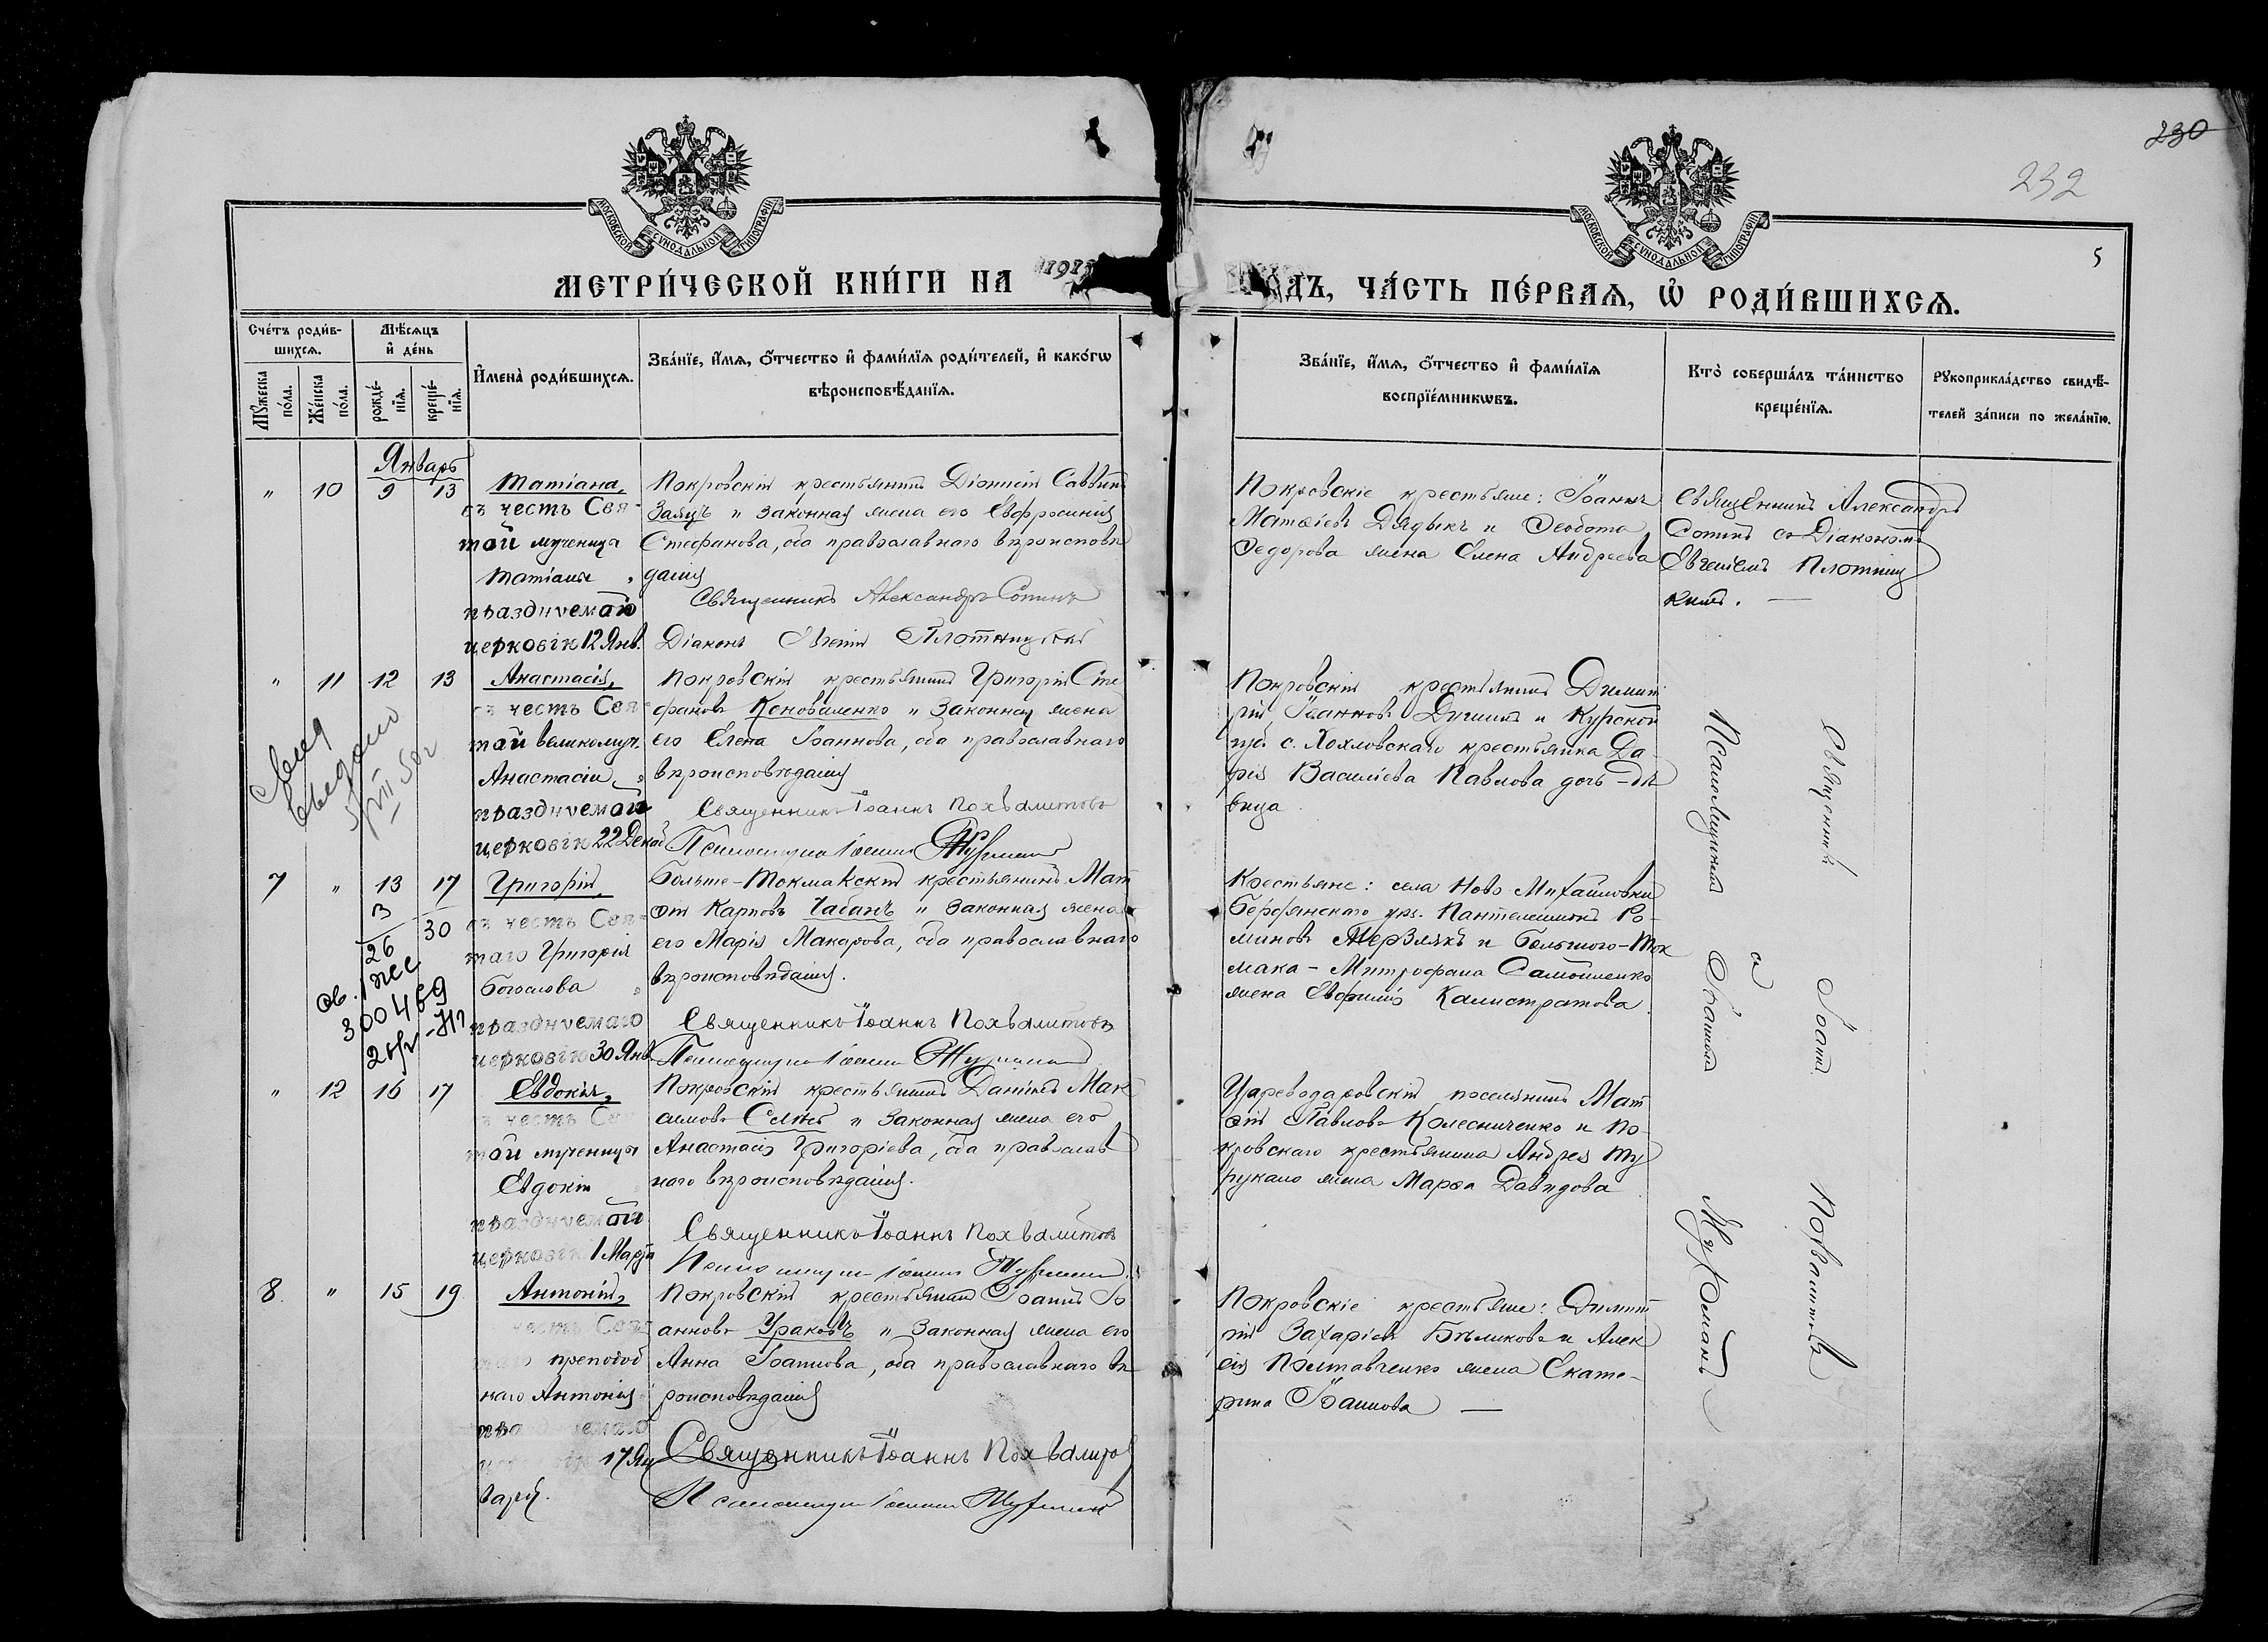 230
232
5
МОСКОВСКОЙ СУНОДАЛЬНОЙ ТИПОГРАФІИ
МОСКОВСКОЙ СУНОДАЛЬНОЙ ТИПОГРАФІИ
МЕТРИ́ЧЕСКОЙ КНИ́ГИ НА 191
ОДЪ, ЧА́СТЬ ПЕ́РВАѦ, Ѡ҆ РОДИ́ВШИХСѦ.
Сче́тъ роди́в-
шихсѧ.
Мѣ́сѧцъ
и҆ де́нь
Мꙋ́жеска
по́ла.
Же́нска
по́ла.
рожде́-
нїѧ.
креще́-
нїѧ.
И҆мена̀ роди́вшихсѧ.
Зва́нїе, и҆́мѧ, ѻ҆́тчество и҆ фами́лїѧ роди́телей, и҆ како́гѡ
вѣроисповѣ́данїѧ.
Зва́нїе, и҆́мѧ, ѻ҆́тчество и҆ фами́лїѧ
воспрїе́мникѡвъ.
Кто̀ соверша́лъ та́инство
креще́нїѧ.
Рꙋкоприкла́дство свидѣ́-
телей за́писи по жела́нїю.
Январь
" 10 9 13
Татіана,
въ честь Свя-
той мученицы
Татіаны,
празднуемой
церковію 12 Янв.
Покровскій крестьянинъ Діонисій Саввинъ
Заяцъ и законная жена его Евфросинія
Стефанова, оба православнаго вѣроисповѣ
данія
Священникъ Александръ Сопинъ
Діаконъ Евгеній Плотницкій
Покровскіе крестьяне: Іоаннъ
Матѳіевъ Дядыкъ и Ѳеодота
Ѳедорова жена Елена Андреева
Священникъ Александръ
Сопинъ съ Діакономъ
Евгеніемъ Плотниц
кимъ. —
" 11 12 13
Анастасія,
въ честь Свя-
той великомуч.
Анастасіи,
празднуемой
церковію 22 Декаб
Покровскій крестьянинъ Григорій Сте
фановъ Коноваленко и законная жена
его Елена Іоаннова, оба православнаго
вѣроисповѣданія
Священникъ Іоаннъ Похвалитовъ
Покровскій крестьянинъ Димит
рій Іоанновъ и Курской
губ. с. Хохловскаго крестьянка Да-
рія Василіева Павлова дочь-дѣ
вица.
7 " 13 17
3
26 30
300469
Григорій,
въ честь Свя-
таго Григорія
Богослова,
празднуемаго
церковію 30 Янв
Больше-Токмакскій крестьянинъ Мат
ѳей Карповъ Чабанъ и законная жена
его Марія Макарова, оба православнаго
вѣроисповѣданія.
Священникъ Іоаннъ Похвалитовъ
Крестьяне: села Ново-Михайловки
Бердянскаго уѣз. Пантелеимонъ Ро-
мановъ Мерзлякъ и Большого-Ток
мака - Митрофана Самойленко
жена Евфимія Калистратова.
" 12 16 17
Евдокія,
въ честь Свя
той мученицы
Евдокіи
празднуемой
церковію 1 Марта
Покровскій крестьянинъ Даніилъ Мак
симовъ и законная жена его
Анастасія Григоріева, оба православ
наго вѣроисповѣданія.
Священникъ Іоаннъ Похвалитовъ
Цареводаровскій поселянинъ Мат
ѳей Павловъ Колесниченко и По-
кровскаго крестьянина Андрея
жена Марѳа Давидова
8. " 15 19
Антоній,
честь Свя
преподоб
наго Антонія
17 Ян
варя.
Покровскій крестьянинъ Іоаннъ Іо
анновъ Ураковъ и законная жена его
Анна Іоаннова, оба православнаго вѣ
роисповѣданія
Священникъ Іоаннъ Похвалитов
Покровскіе крестьяне: Димит
рій Захаріевъ Бѣликовъ и Алек
сія Полтавченко жена Екате-
рина Іоаннова —
Священникъ Іоаннъ Похвалитовъ